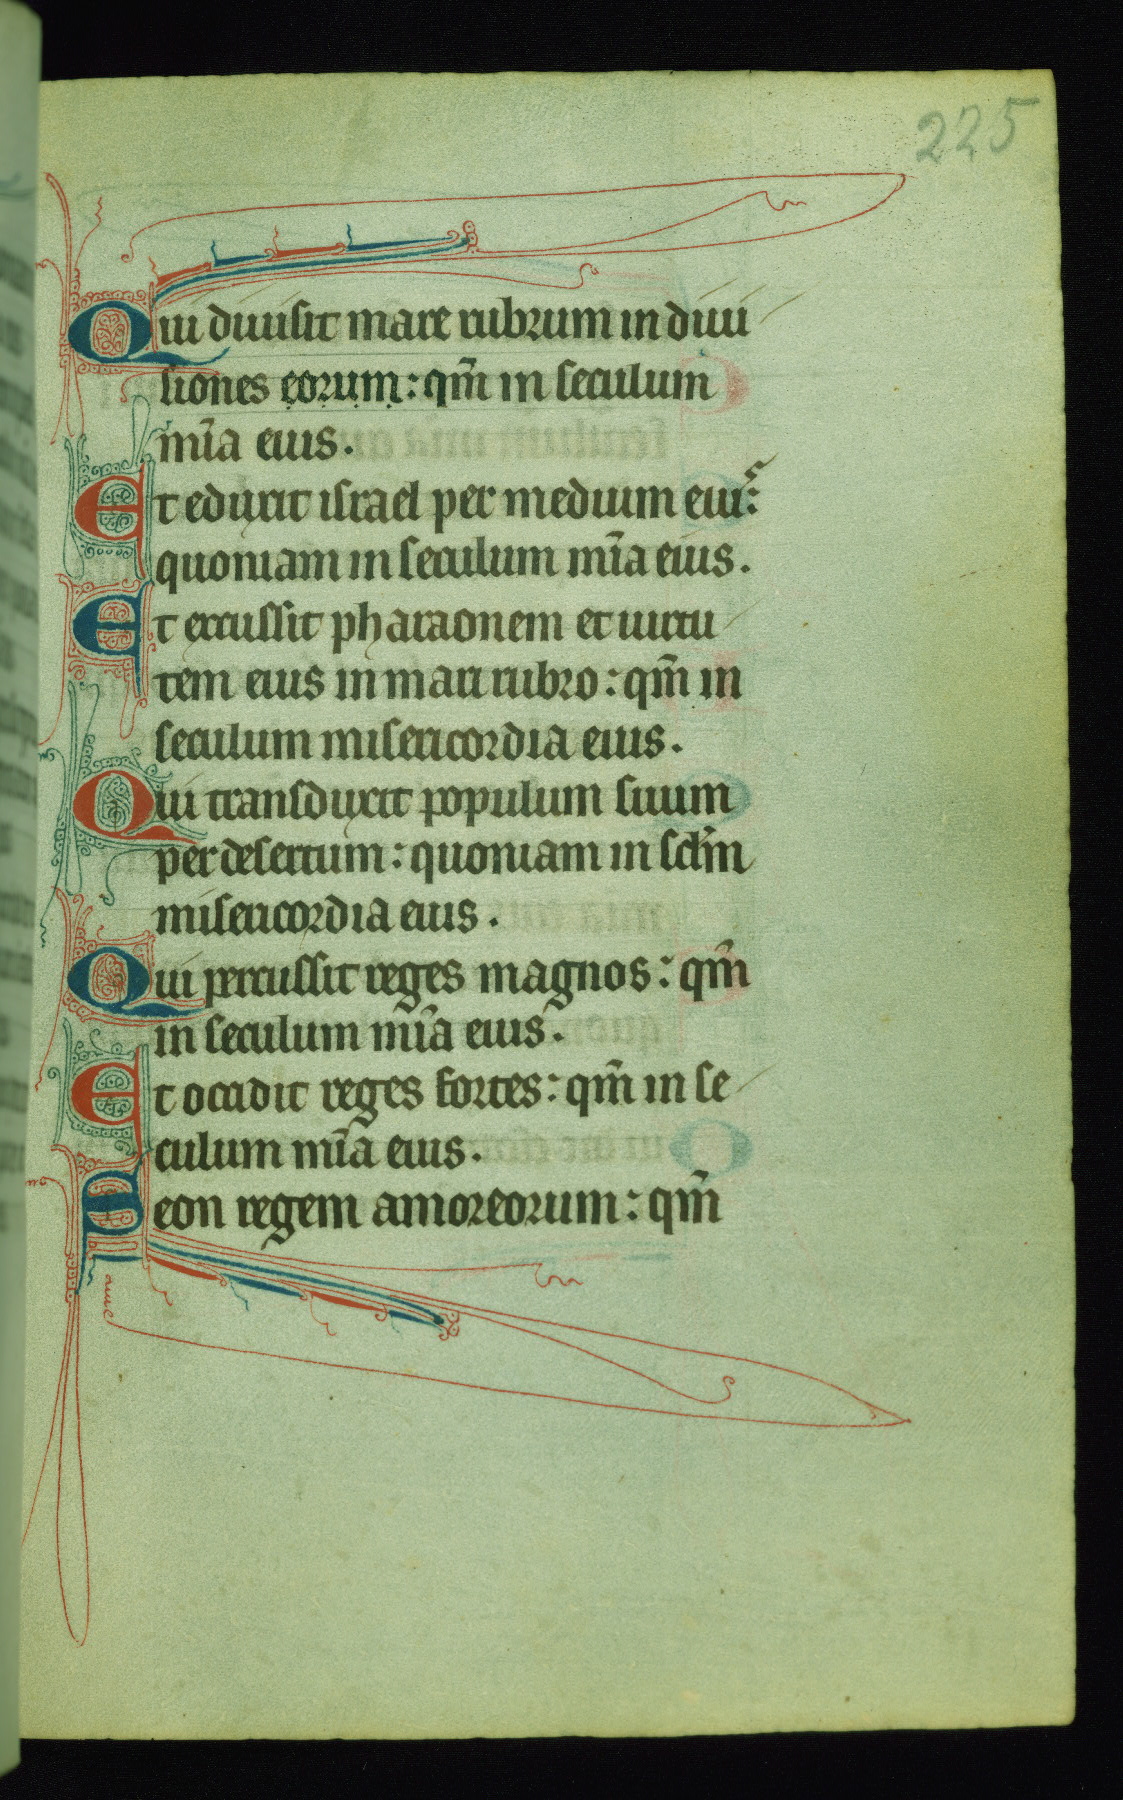 225
Qui diuisit mare rubrum in diui
siones eorum: qm̄ in seculum
mīa eius.
Et eduxit israel per medium eiuˢ:
quoniam in seculum mīa eius.
Et excussit pharaonem et uirtu
tem eius in mari rubro: qm̄ in
seculum misericordia eius.
Qui transduxit populum suum
per desertum: quoniam in sclm̄
misericordia eius.
Qui percussit reges magnos: qm̄
in seculum mīa eius.
Et occidit reges fortes: qm̄ in se
culum mīa eius.
Seon regem amoreorum: qm̄